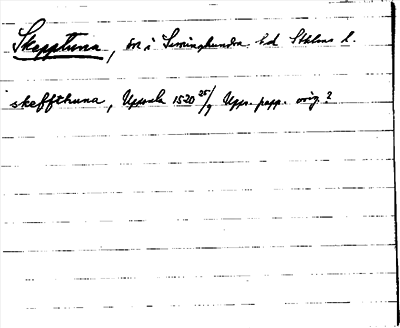 Skepptuna, sn i Seminghundra hd Sthlms l.
skeffthuna, Uppsala 1520 25/9 Upps. papp. orig.?